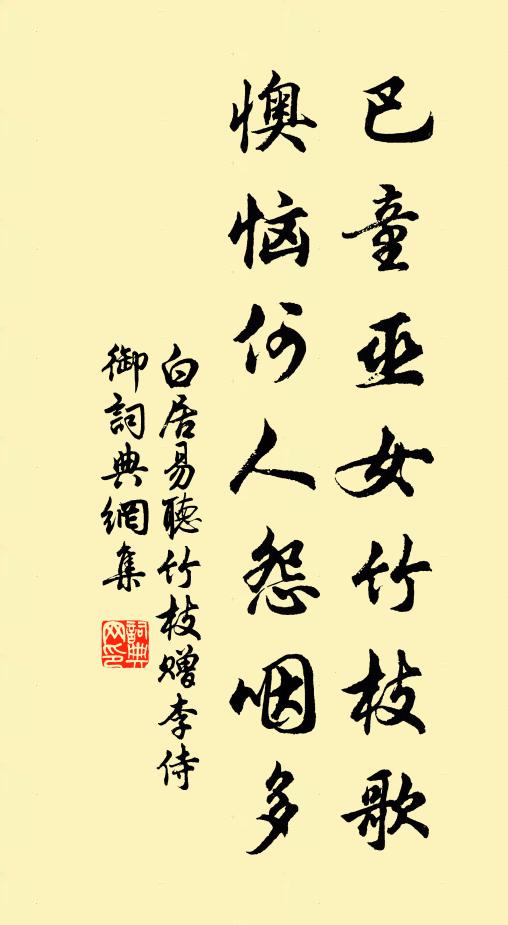 巴童巫女竹枝歌
懊恼何人怨咽多
白居易聽竹枝赠李侍
御詞典網集
詞典网印